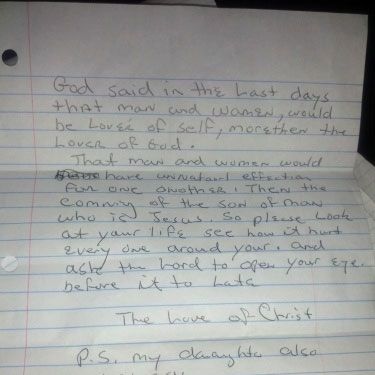 God said in the Last days
that man and women, would
be Lover of self, more then the
Lover of God.
That man and women would
have unnaturl effection
for one another. Then the
comming of the son of man
who is Jesus. So please Look
at your life see how it hurt
every one aroud your. and
ask the Lord to open your eye.
before it to Late
The Love of Christ
P.S. my daughter also